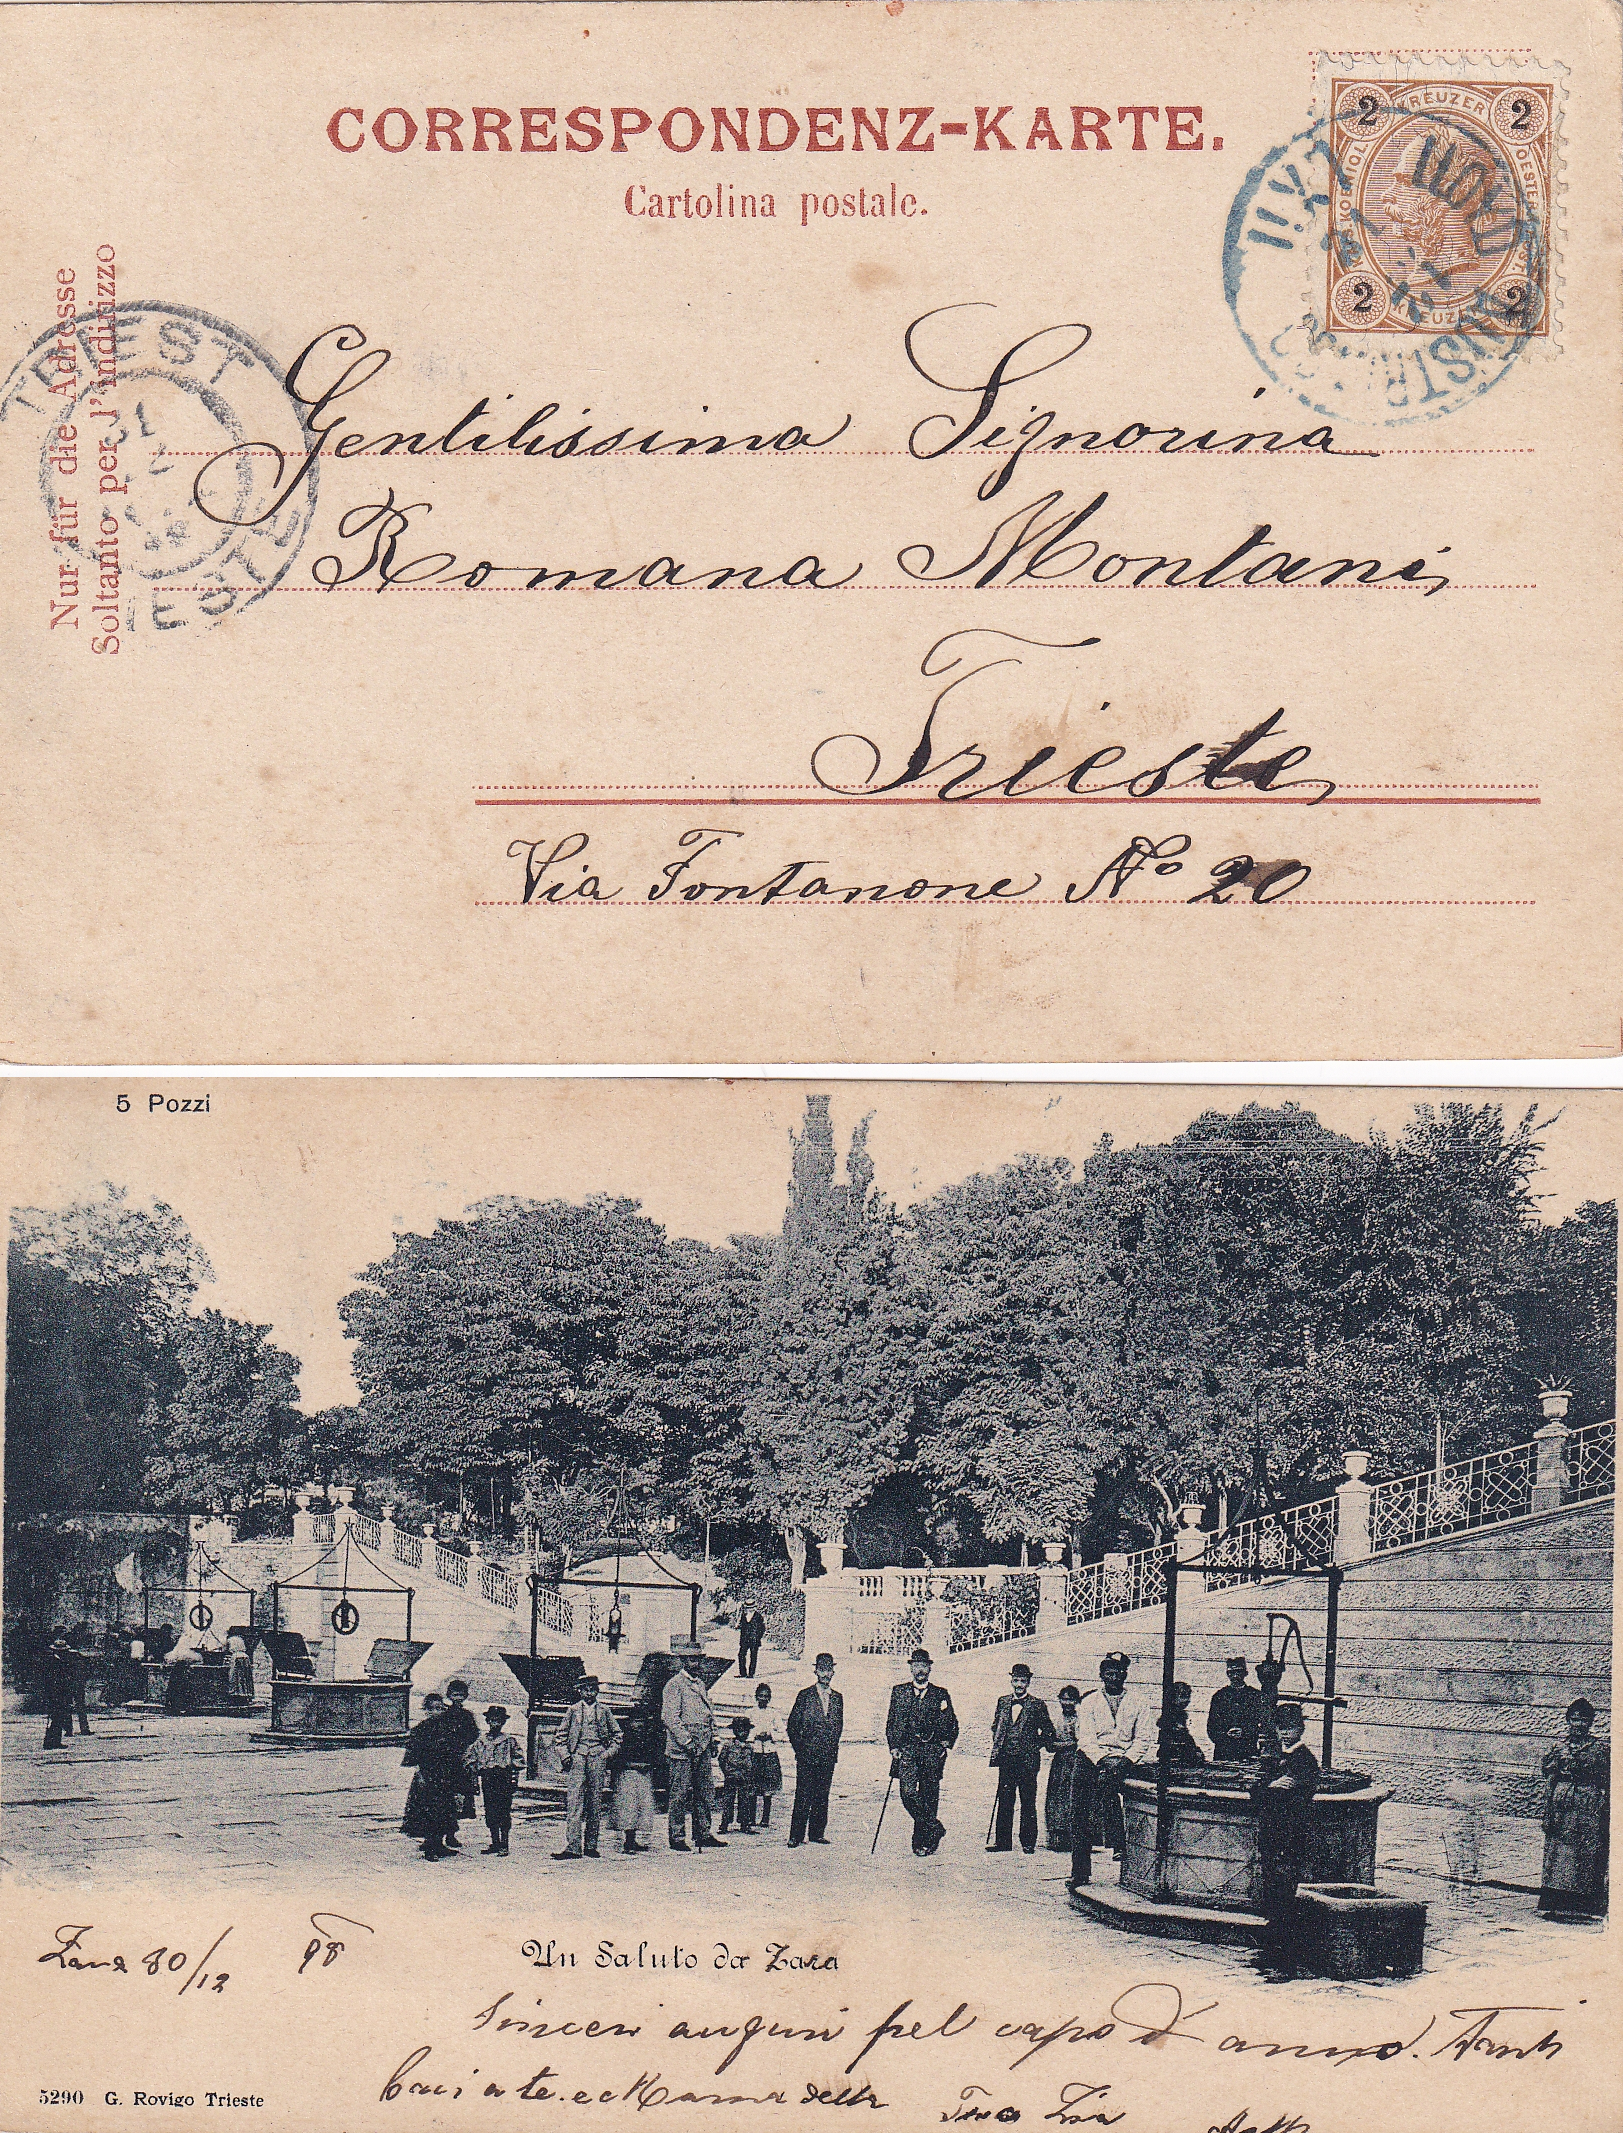 CORRESPONDENZ-KARTE.
Cartolina postale.
2 KREUZER 2
2 KREUZER 2
LLOYD AUSTR
Nur für die Adresse
Soltanto per l'indirizzo
TRIEST
TRIESTE
Gentilissima Signorina
Romana Montani,
Trieste,
Via Fontanone No 20
5 Pozzi
Zara 30/12 98
Un Saluto da Zara
Sinceri auguri pel capo d'anno. Tanti
baci a te e Mamma della Tua Zia
5290 G. Rovigo Trieste